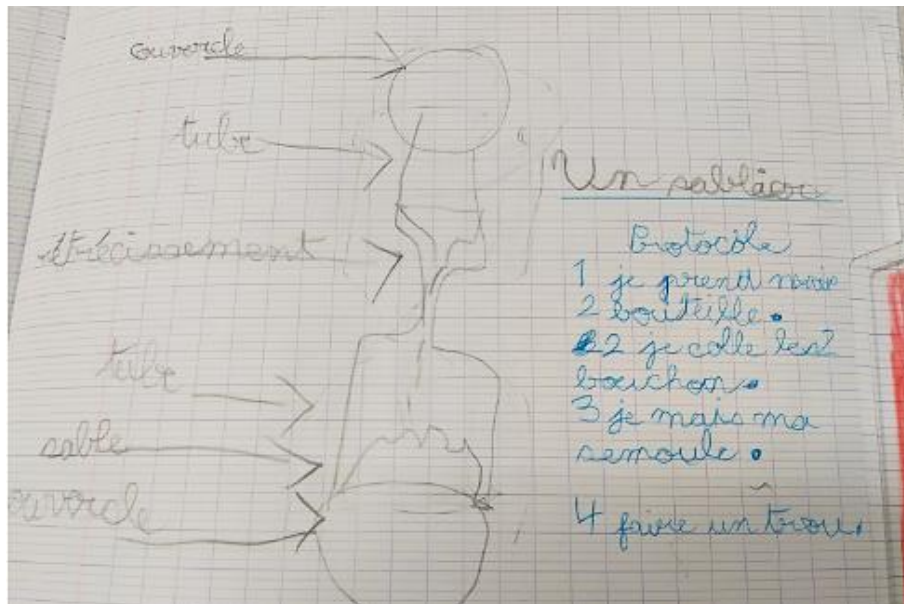 couvercle
tube
étrécissement
tube
sable
couvercle
Un sablier
Protocole
1 je prend
2 bouteille.
2 je colle les 2
bouchon.
3 je mais ma
semoule.
4 faire un trou.